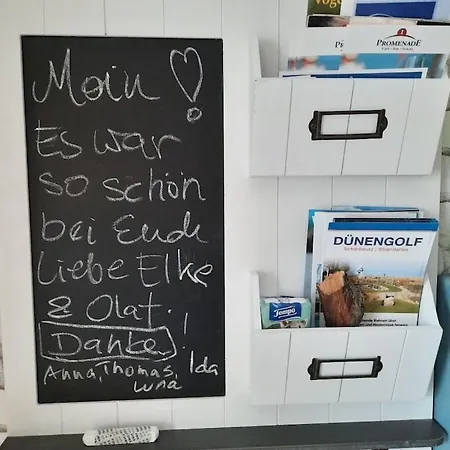 Moin ♡!
Es war
so schön
bei Euch
Liebe Elke
& Olaf.
Danke!
Anna, Thomas, Ida
Luna
PROMENADE
DÜNENGOLF
Tempo